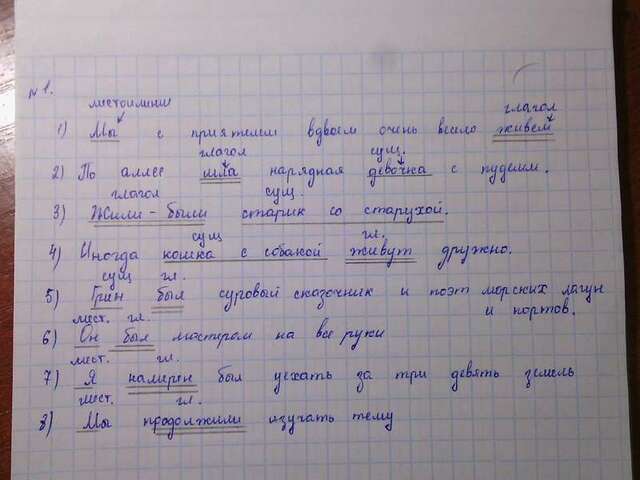 № 1.
местоимение глагол
1) Мы с приятелем вдвоем очень весело живем
глагол сущ.
2) По аллее шла нарядная девочка с пуделем.
глагол сущ.
3) Жили-были старик со старухой.
сущ гл.
4) Иногда кошка с собакой живут дружно.
сущ гл.
5) Грин был суровый сказочник и поэт морских лагун
и портов.
мест. гл.
6) Он был мастером на все руки
мест. гл.
7) Я намерен был уехать за три девять земель
мест. гл.
8) Мы продолжили изучать тему